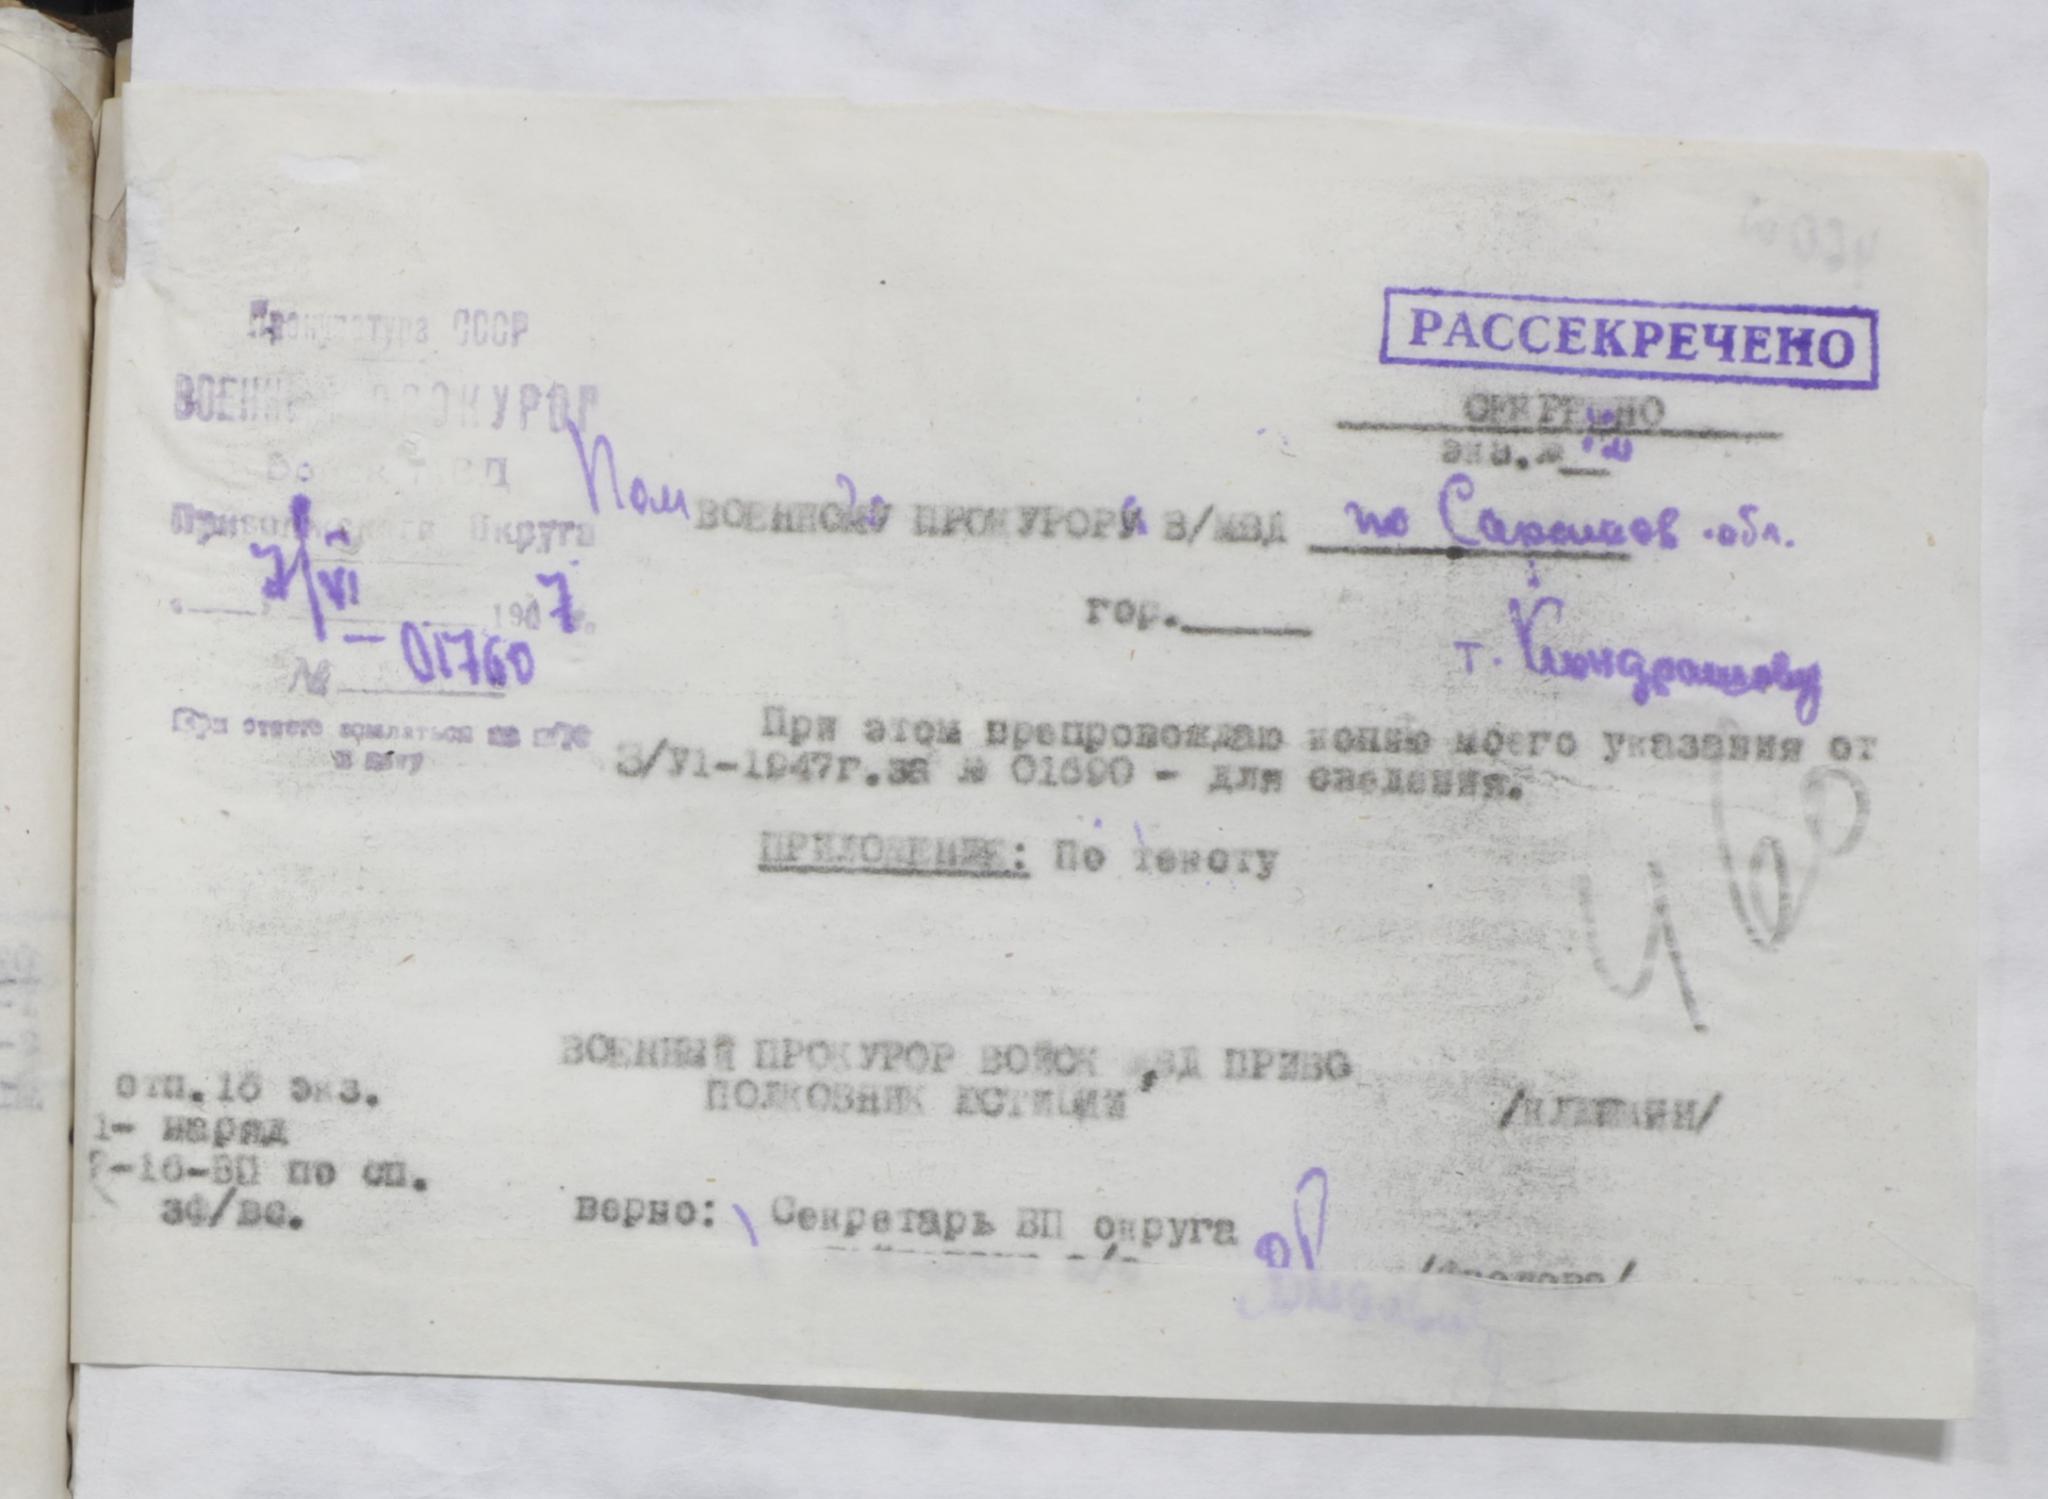 Прокуратура СССР
ВОЕННЫЙ ПРОКУРОР
Войск МВД
Приволжского Округа
7/VI 1947 г.
№ — 01760
При ответе ссылаться на №
и дату
РАССЕКРЕЧЕНО
СЕКРЕТНО
экз.№
Пом ВОЕННОГО ПРОКУРОРА В/МВД по Саратов. обл.
гор.
т. Кондрашову
При этом препровождаю копию моего указания от
3/У1-1947г.за № 01690 - для сведения.
ПРИЛОЖЕНИЕ: По тексту
460
ВОЕННЫЙ ПРОКУРОР ВОЙСК МВД ПРИВО
ПОЛКОВНИК ЮСТИЦИИ
отп.16 экз.
1- наряд
2-16-ВП по сп.
зф/вс.
верно: Секретарь ВП округа
/Фролова/